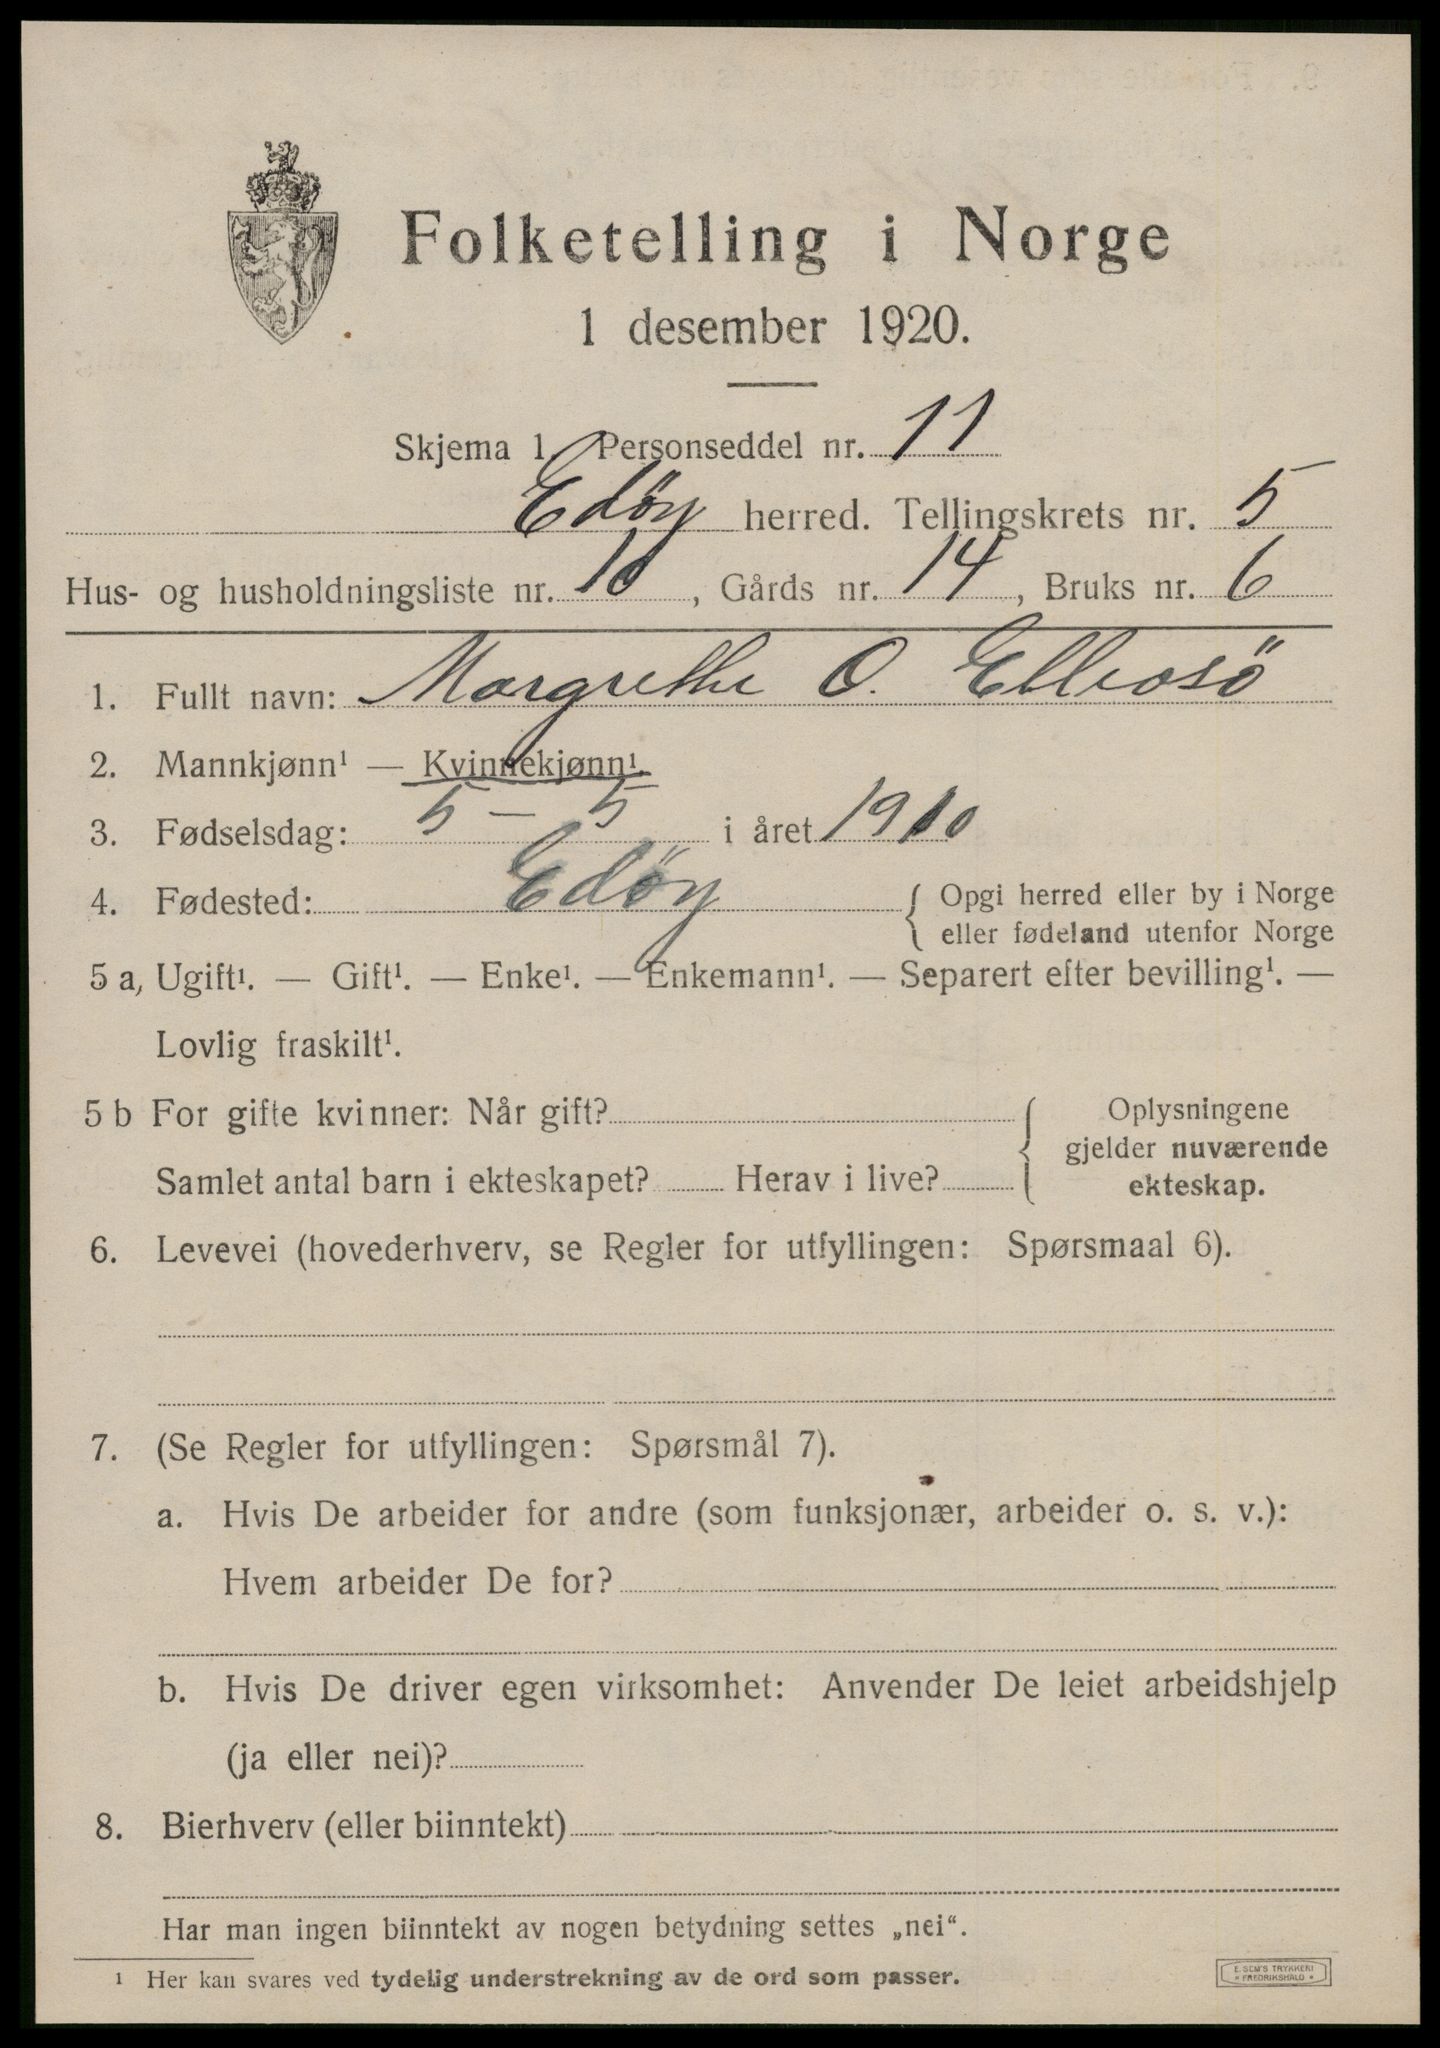 Folketelling i Norge
1 desember 1920.
Skjema 1. Personseddel nr. 11
Edøy herred. Tellingskrets nr. 5
Hus- og husholdningsliste nr. 10, Gårds nr. 14, Bruks nr. 6
1. Fullt navn: Margrethe O.
2. Mannkjønn¹ — Kvinnekjønn¹.
3. Fødselsdag: 5 – 5 i året 1910
4. Fødested: Edøy { Opgi herred eller by i Norge
eller fødeland utenfor Norge
5 a, Ugift¹. — Gift¹. — Enke¹. — Enkemann¹. — Separert efter bevilling¹. —
Lovlig fraskilt¹.
5 b For gifte kvinner: Når gift?
Samlet antal barn i ekteskapet? Herav i live?
{ Oplysningene
gjelder nuværende
ekteskap.
6. Levevei (hovederhverv, se Regler for utfyllingen: Spørsmaal 6).
7. (Se Regler for utfyllingen: Spørsmål 7).
a. Hvis De arbeider for andre (som funksjonær, arbeider o. s. v.):
Hvem arbeider De for?
b. Hvis De driver egen virksomhet: Anvender De leiet arbeidshjelp
(ja eller nei)?
8. Bierhverv (eller biinntekt)
Har man ingen biinntekt av nogen betydning settes „nei“.
¹ Her kan svares ved tydelig understrekning av de ord som passer.
E. SEM'S TRYKKERI
* FREDRIKSHALD *